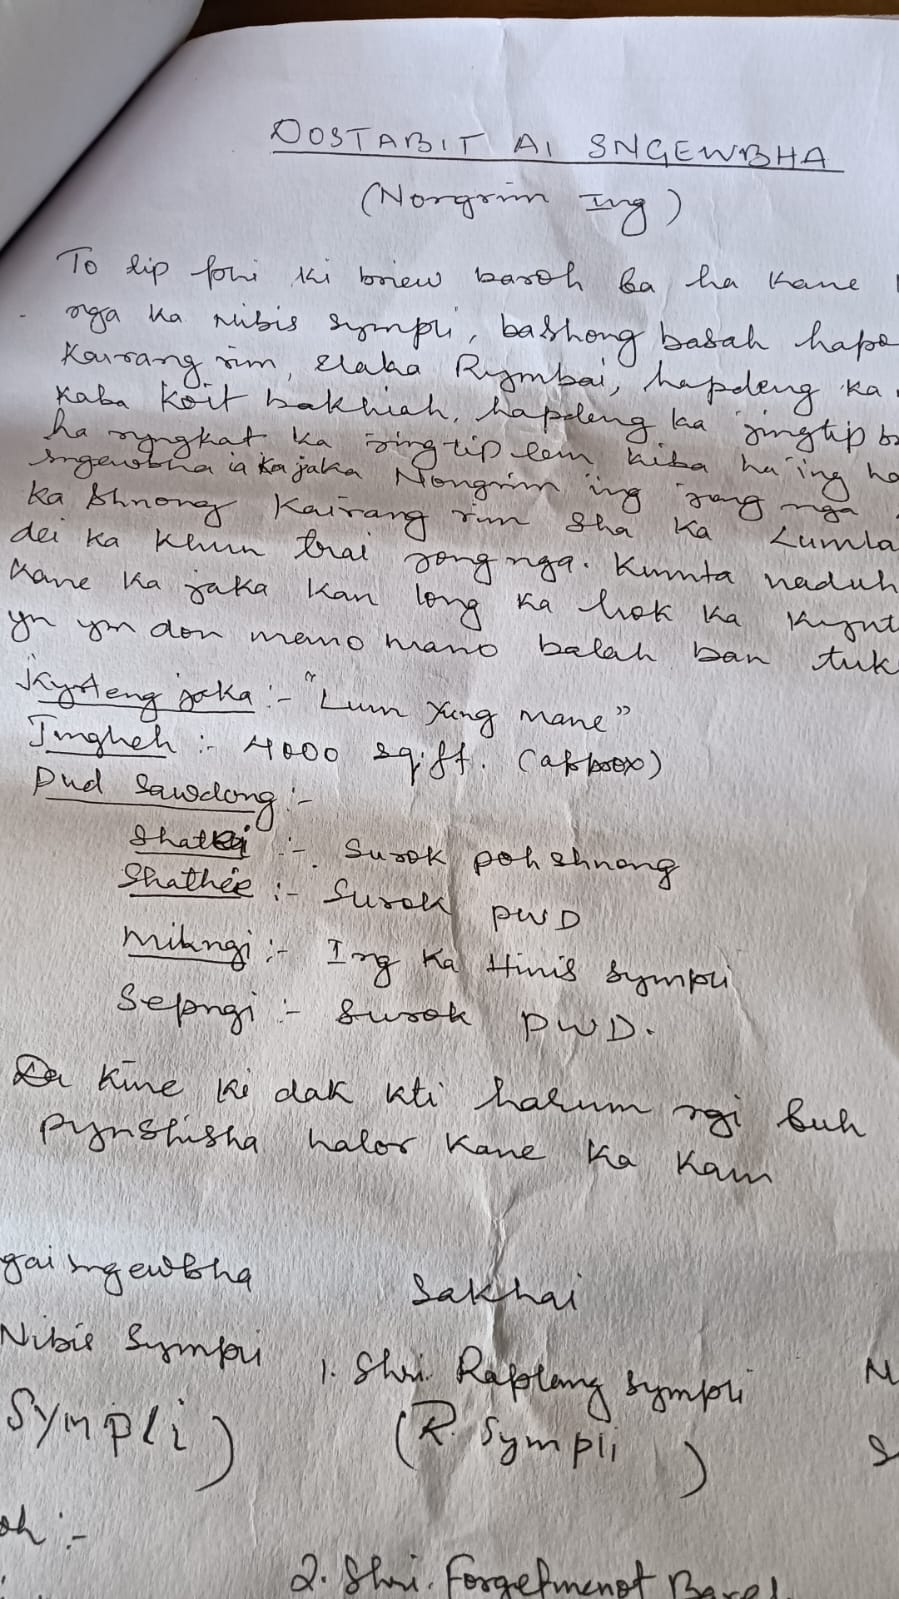 DOSTABIT AI SNGEWBHA
(Nongrim Ing)
To tip phi ki briew baroh ba ha kane
nga ka Nibis Sympli, bashong basah hapo
Kairang rim, Elaka Rymbai, hapdeng ka
kaba koit bakhiah, hapdeng ka jingtip
ha nyngkat ka jingtip lem kiba ha ing
sngewbha ia ka jaka Nongrim ing jong nga
ka Shnong Kairang rim sha ka Lumla
dei ka khun trai jong nga. Kumta naduh
kane ka jaka kan long ka hok ka kynt
yn ym don mano mano balah ban tuk
Kyrteng jaka :- "Lum Yung mane"
Jingheh :- 4000 sq.ft. (approx)
Pud sawdong :-
Shatei :- Surok poh shnong
Shathie :- Surok PWD
Mihngi :- Ing Ka Hinis Sympli
Sepngi :- Surok PWD.
Da kine ki dak kti harum ngi buh
pynshisha halor kane ka kam
gai sngewbha Sakhai
Nibis Sympli 1. Shri. Raplang Sympli
Sympli) (R. Sympli)
oh :-
2. Shri. Forgetmenot